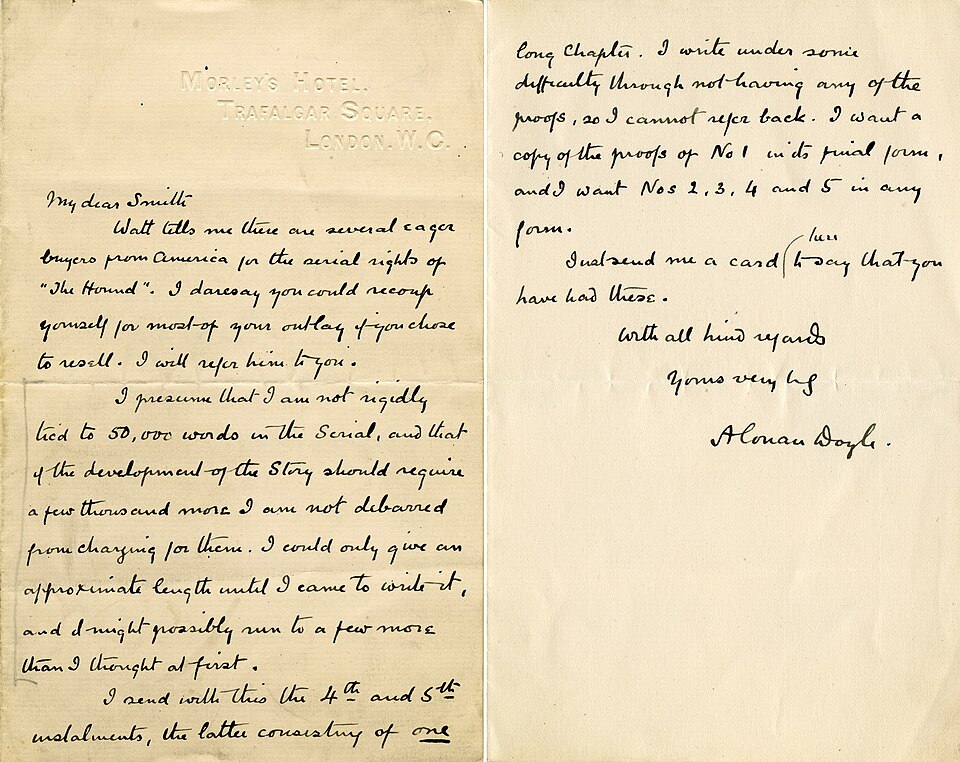 MORLEY'S HOTEL.
TRAFALGAR SQUARE.
LONDON. W.C.
My dear Smith
Watt tells me there are several eager
buyers from America for the serial rights of
"The Hound". I daresay you could recoup
yourself for most of your outlay if you chose
to resell. I will refer him to you.
I presume that I am not rigidly
tied to 50,000 words in the Serial, and that
if the development of the Story should require
a few thousand more I am not debarred
from charging for them. I could only give an
approximate length until I came to write it,
and I might possibly run to a few more
than I thought at first.
I send with this the 4th and 5th
instalments, the latter consisting of one
long Chapter. I write under some
difficulty through not having any of the
proofs, so I cannot refer back. I want a
copy of the proofs of No 1 in its final form,
and I want Nos 2, 3, 4 and 5 in any
form.
Just send me a card here to say that you
have had these.
With all kind regards
Yours very
A Conan Doyle.